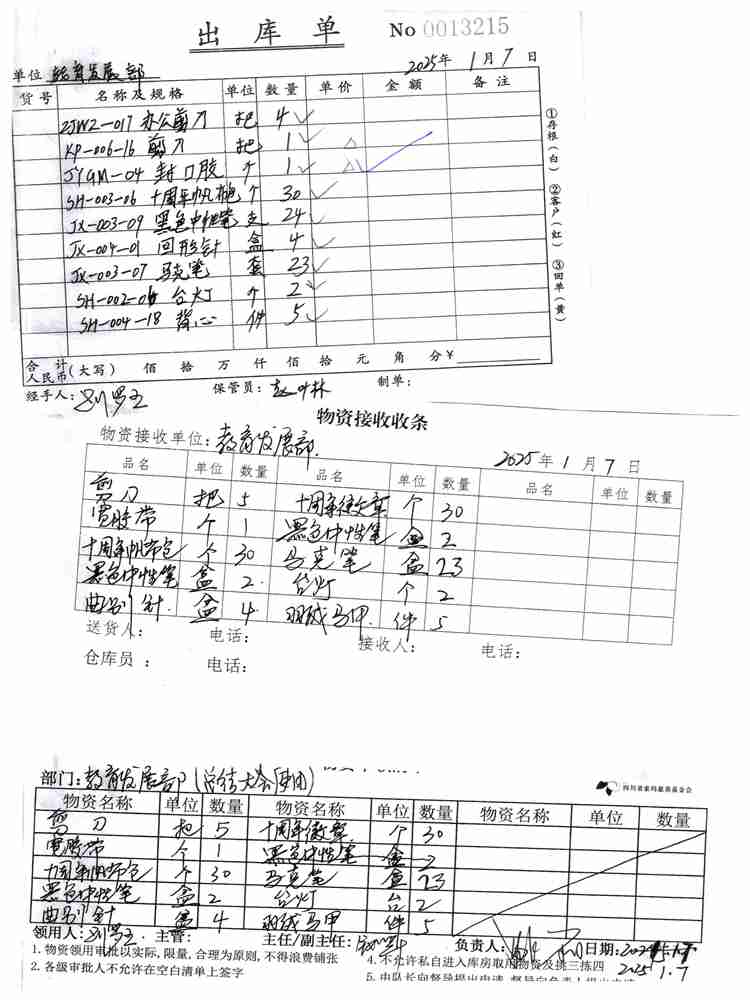 出库单 No 0013215
单位 教育发展部 2025年 1月 7日
货号 名称及规格 单位 数量 单价 金额 备注
ZJWZ-017 办公剪刀 把 4
KP-006-16 剪刀 把 1
JYGM-04 封口胶 个 1
SH-003-06 十周年帆布包 个 30
JX-003-09 黑色中性笔 支 24
JX-004-01 回形针 盒 4
JX-003-07 马克笔 套 23
SH-002-06 台灯 个 2
SH-004-18 背心 件 5
合计人民币 (大写) 佰 拾 万 仟 佰 拾 元 角 分 ¥
经手人: 保管员: 制单:
①存根(白) ②客户(红) ③回单(黄)
物资接收收条
物资接收单位: 教育发展部 2025年 1月 7日
品名 单位 数量 品名 单位 数量 品名 单位 数量
剪刀 把 5 十周年徽章 个 30
宽胶带 个 1 黑色中性笔 盒 2
十周年帆布包 个 30 马克笔 盒 23
黑色中性笔 盒 2 台灯 个 2
曲别针 盒 4 羽绒马甲 件 5
送货人: 电话: 接收人: 电话:
仓库员: 电话:
部门: 教育发展部(总结大会使用)
四川省索玛慈善基金会
物资名称 单位 数量 物资名称 单位 数量 物资名称 单位 数量
剪刀 把 5 十周年徽章 个 30
宽胶带 个 1 黑色中性笔 盒
十周年帆布包 个 30 马克笔 盒 23
黑色中性笔 盒 2 台灯 台 2
曲别针 盒 4 羽绒马甲 件 5
领用人: 主管: 主任/副主任: 负责人: 日期: 2025.1.7
1. 物资领用审批以实际,限量,合理为原则,不得浪费铺张 4. 不允许私自进入库房取用物资及挑三拣四
2025.1.7
2. 各级审批人不允许在空白清单上签字